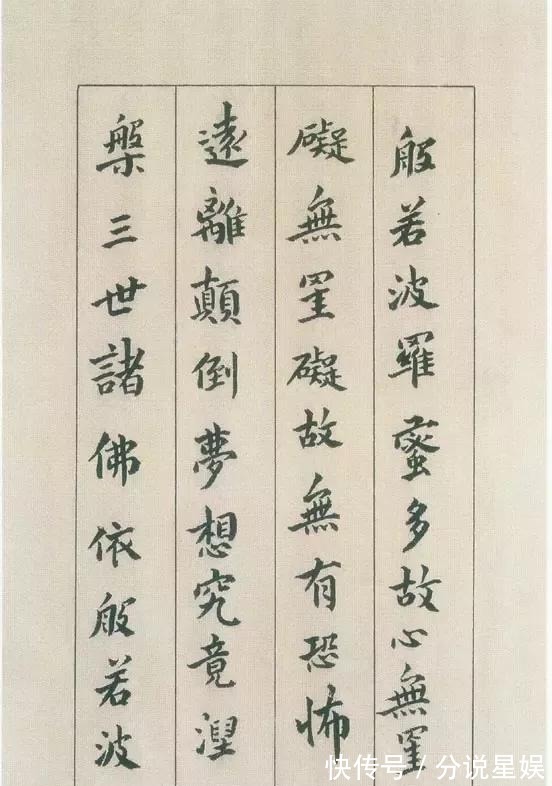 般若波羅蜜多故心無罣
礙無罣礙故無有恐怖
遠離顛倒夢想究竟涅
槃三世諸佛依般若波
快传号/分说星娱